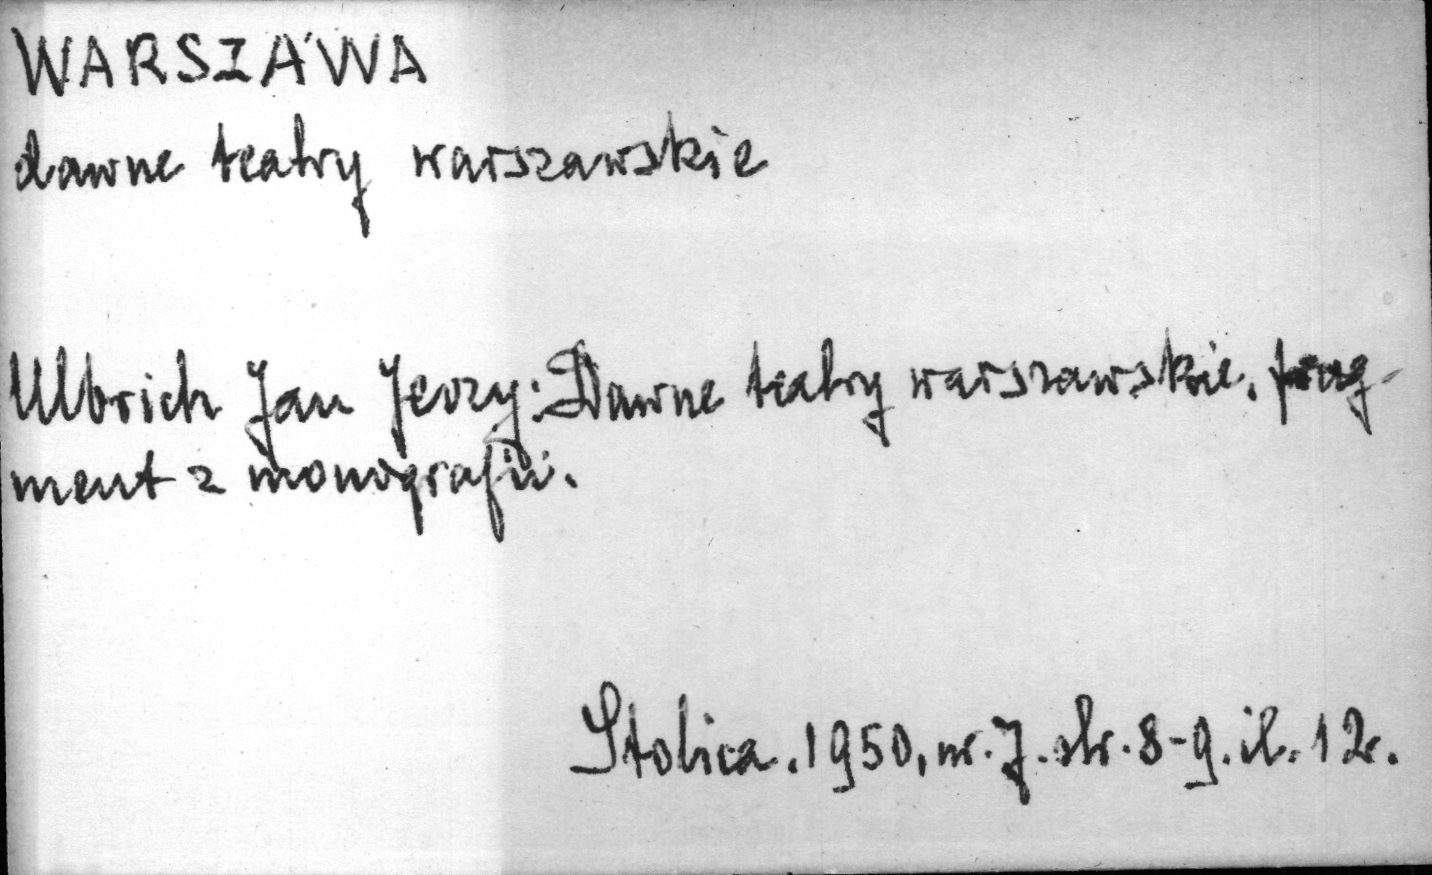 WARSZAWA
dawne teatry warszawskie
Ulbrich Jan Jerzy: Dawne teatry warszawskie. frag-
ment z monografii.
Stolica. 1950, nr. 7. str. 8-9. il. 12.